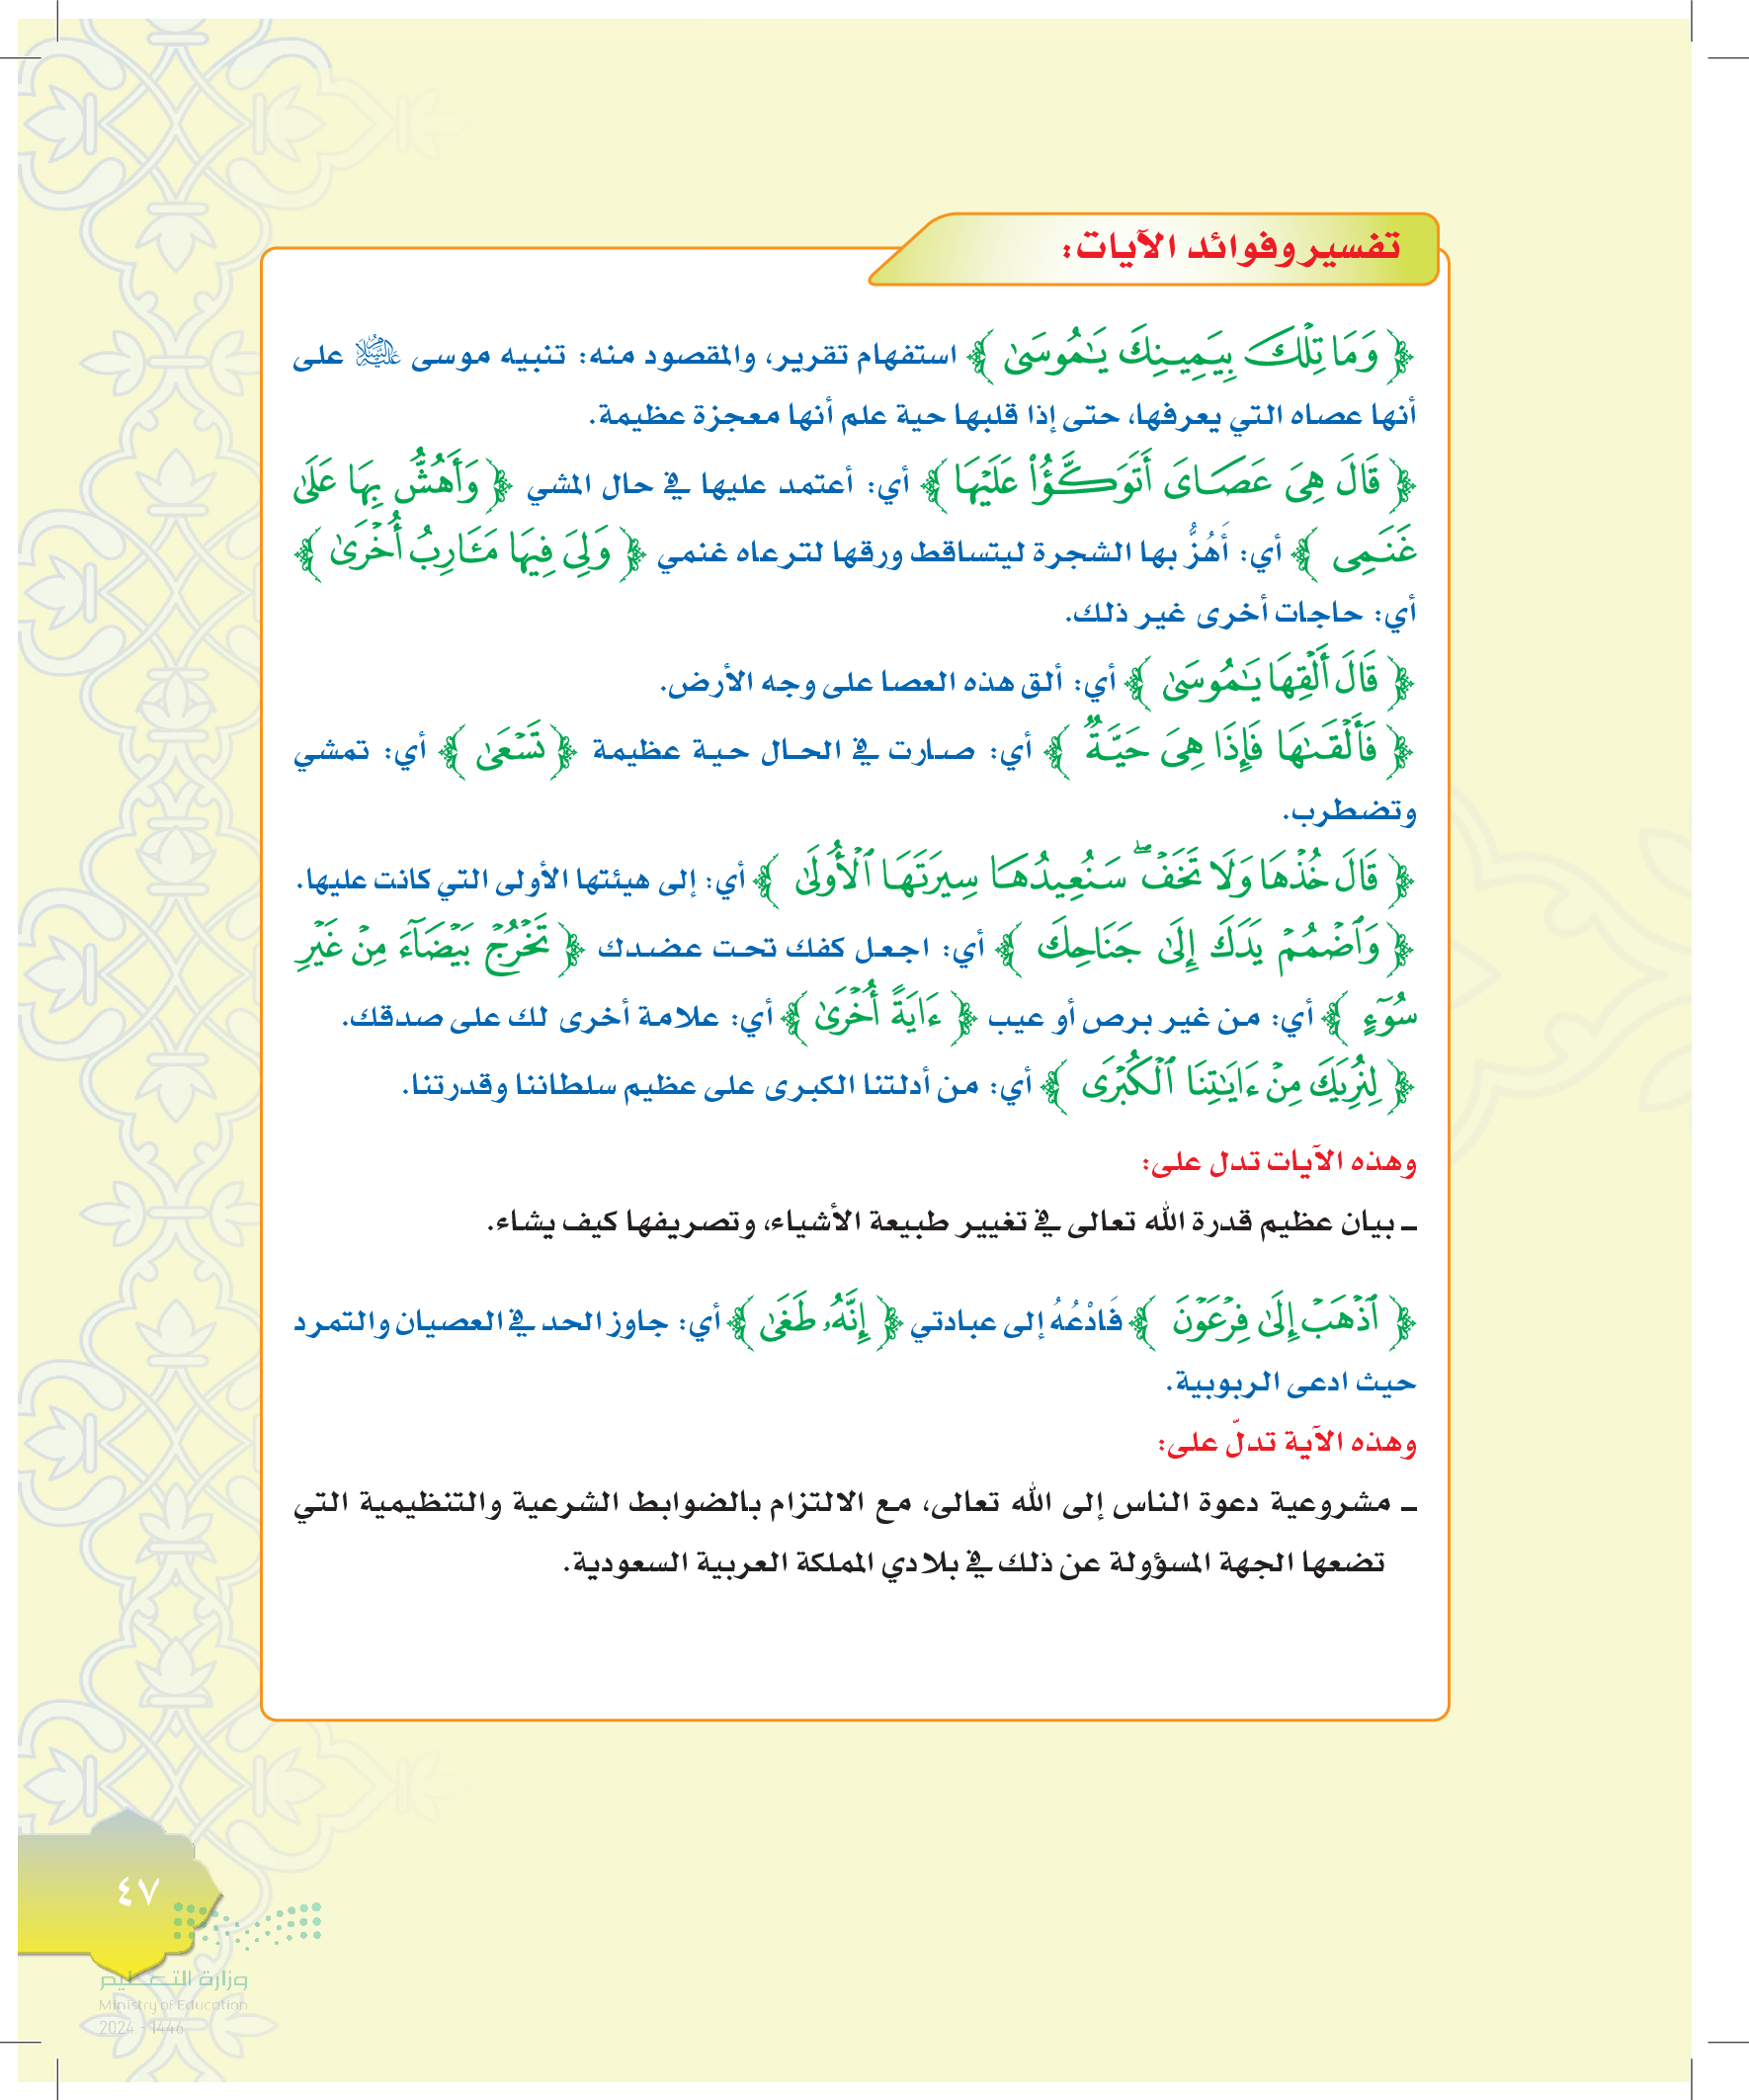 تفسير وفوائد الآيات:
﴿ وَمَا تِلْكَ بِيَمِينِكَ يَٰمُوسَىٰ ﴾ استفهام تقرير، والمقصود منه: تنبيه موسى عليه السلام على
أنها عصاه التي يعرفها، حتى إذا قلبها حية علم أنها معجزة عظيمة.
﴿ قَالَ هِىَ عَصَاىَ أَتَوَكَّؤُا۟ عَلَيْهَا ﴾ أي: أعتمد عليها في حال المشي ﴿ وَأَهُشُّ بِهَا عَلَىٰ
غَنَمِى ﴾ أي: أَهُزُّ بها الشجرة ليتساقط ورقها لترعاه غنمي ﴿ وَلِىَ فِيهَا مَـَٔارِبُ أُخْرَىٰ ﴾
أي: حاجات أخرى غير ذلك.
﴿ قَالَ أَلْقِهَا يَٰمُوسَىٰ ﴾ أي: ألق هذه العصا على وجه الأرض.
﴿ فَأَلْقَىٰهَا فَإِذَا هِىَ حَيَّةٌ ﴾ أي: صارت في الحال حية عظيمة ﴿ تَسْعَىٰ ﴾ أي: تمشي
وتضطرب.
﴿ قَالَ خُذْهَا وَلَا تَخَفْ ۖ سَنُعِيدُهَا سِيرَتَهَا ٱلْأُولَىٰ ﴾ أي: إلى هيئتها الأولى التي كانت عليها.
﴿ وَٱضْمُمْ يَدَكَ إِلَىٰ جَنَاحِكَ ﴾ أي: اجعل كفك تحت عضدك ﴿ تَخْرُجْ بَيْضَآءَ مِنْ غَيْرِ
سُوٓءٍ ﴾ أي: من غير برص أو عيب ﴿ ءَايَةً أُخْرَىٰ ﴾ أي: علامة أخرى لك على صدقك.
﴿ لِنُرِيَكَ مِنْ ءَايَٰتِنَا ٱلْكُبْرَى ﴾ أي: من أدلتنا الكبرى على عظيم سلطاننا وقدرتنا.
وهذه الآيات تدل على:
ـ بيان عظيم قدرة الله تعالى في تغيير طبيعة الأشياء، وتصريفها كيف يشاء.
﴿ ٱذْهَبْ إِلَىٰ فِرْعَوْنَ ﴾ فَادْعُهُ إلى عبادتي ﴿ إِنَّهُۥ طَغَىٰ ﴾ أي: جاوز الحد في العصيان والتمرد
حيث ادعى الربوبية.
وهذه الآية تدلّ على:
ـ مشروعية دعوة الناس إلى الله تعالى، مع الالتزام بالضوابط الشرعية والتنظيمية التي
تضعها الجهة المسؤولة عن ذلك في بلادي المملكة العربية السعودية.
٤٧
وزارة التعليم
Ministry of Education
2024 - 1446